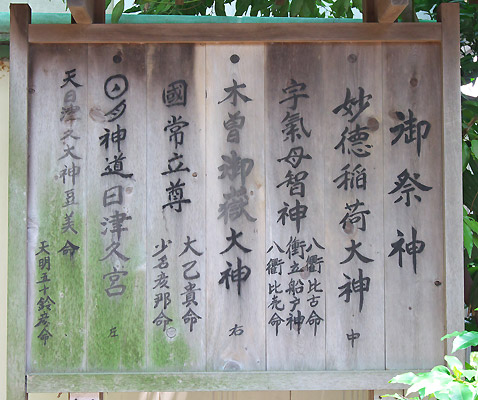 御祭神
妙徳稲荷大神 中
宇氣母智神
八衢比古命
衝立船戸神
八衢比売命
木曽御嶽大神 右
國常立尊
大己貴命
少名彦那命
神道日津久宮 左
天日津久大神豆美命
天明五十鈴彦命